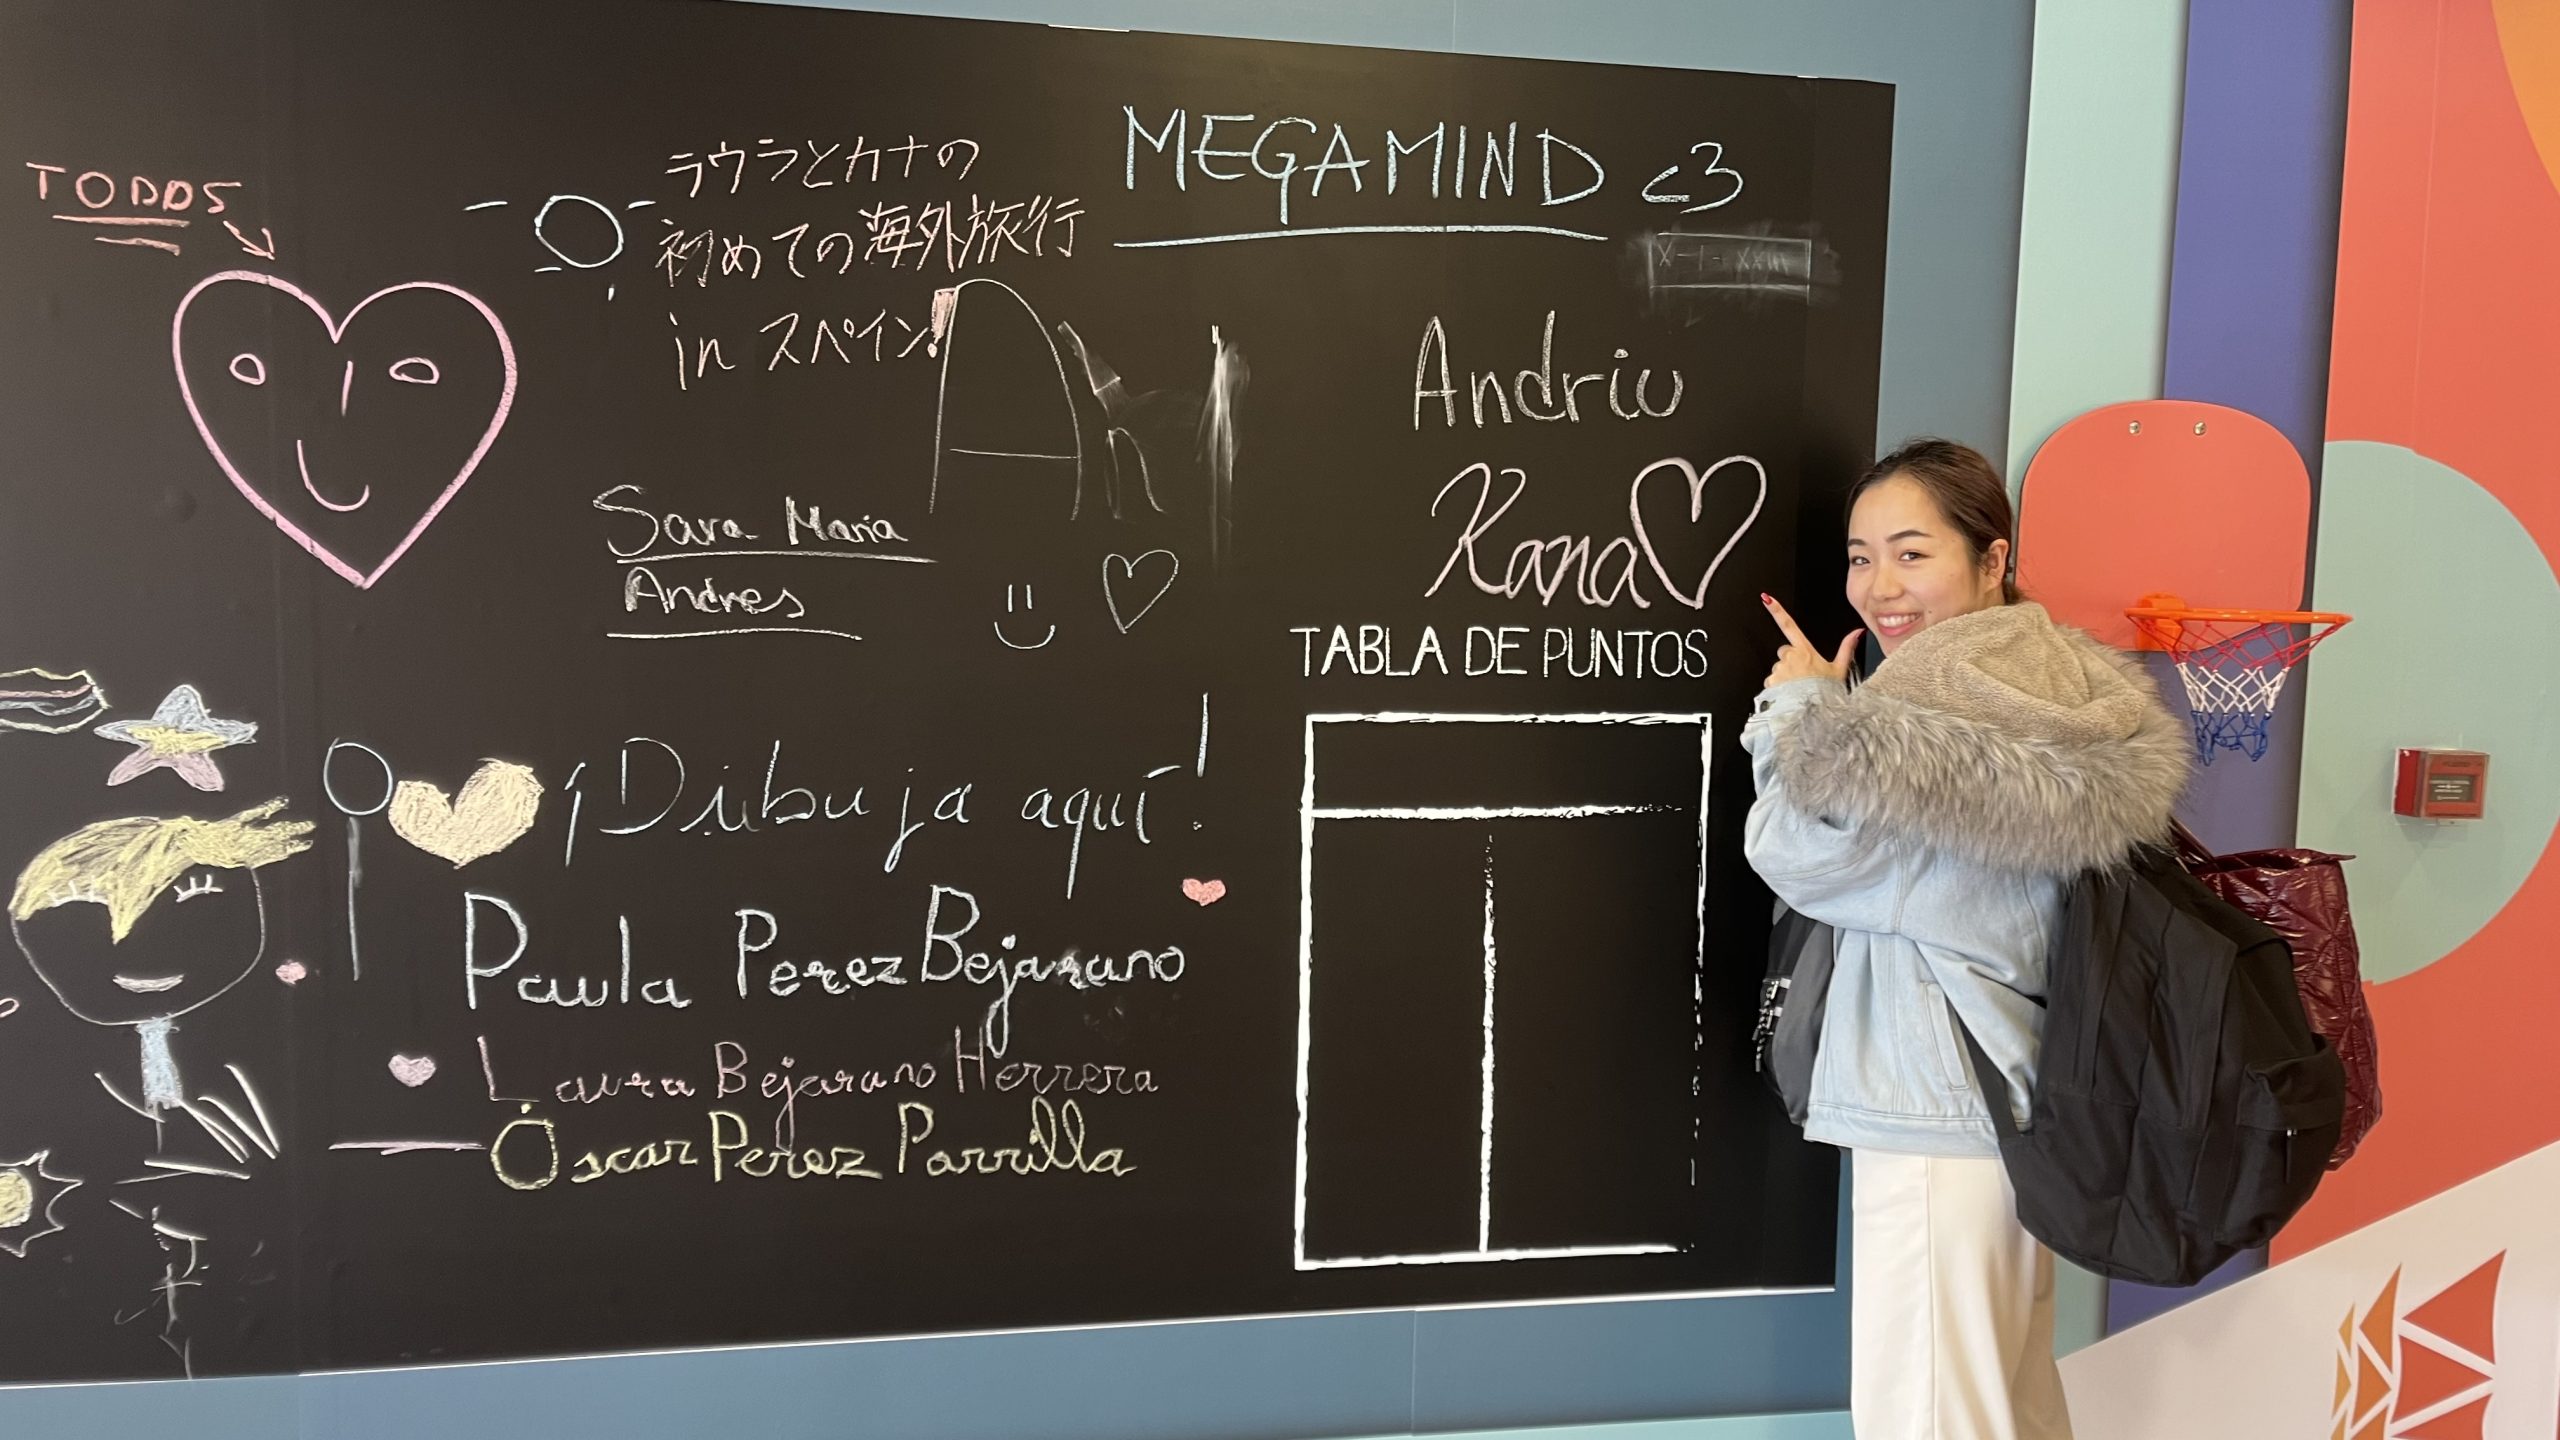 TODDS
ラウラとカナの
初めての海外旅行
in スペイン!
MEGAMIND <3
Andriu
Kana
Sara Maria
Andres
TABLA DE PUNTOS
¡Dibuja aquí!
Paula Perez Bejarano
Laura Bejarano Herrera
Óscar Perez Parrilla